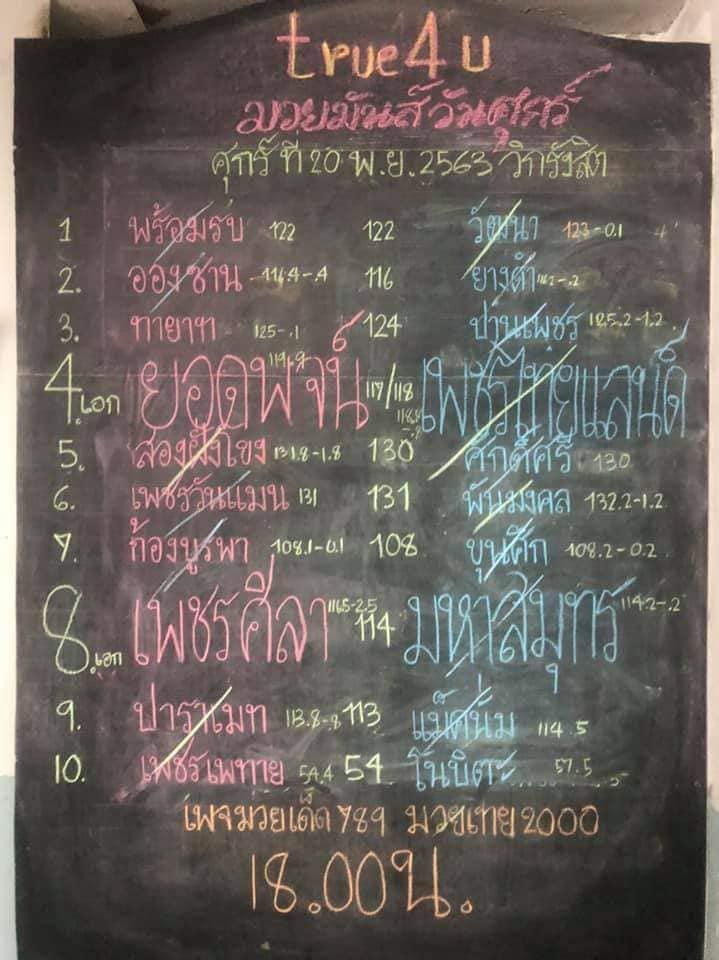 true4u
มวยมันส์วันศุกร์
ศุกร์ ที่ 20 พ.ย. 2563 วิกรังสิต
1 พร้อมรบ 122 122 วัฒนา 123-0.1
2. อองซาน 116.4-.4 116 ยางดำ 116.2-.2
3. ทายาท 125-.1 124 ป่านเพชร 125.2-1.2
4.เอก ยอดพจน์ 119.9 117/118 118.8 เพชรไทยแลนด์
5. สองฝั่งโขง 131.8-1.8 130 ศักดิ์ศรี 130
6. เพชรวันแมน 131 131 พันมงคล 132.2-1.2
7. ก้องบูรพา 108.1-0.1 108 ขุนศึก 108.2-0.2
8.เอก เพชรศิลา 116.5-2.5 114 มหาสมุทร 114.2-.2
9. ปาราเมท 113.8-.8 113 แม็คนั่ม 114.5
10. เพชรเพทาย 54.4 54 โนบิตะ 57.5
เพจมวยเด็ด789 มวยไทย2000
18.00น.